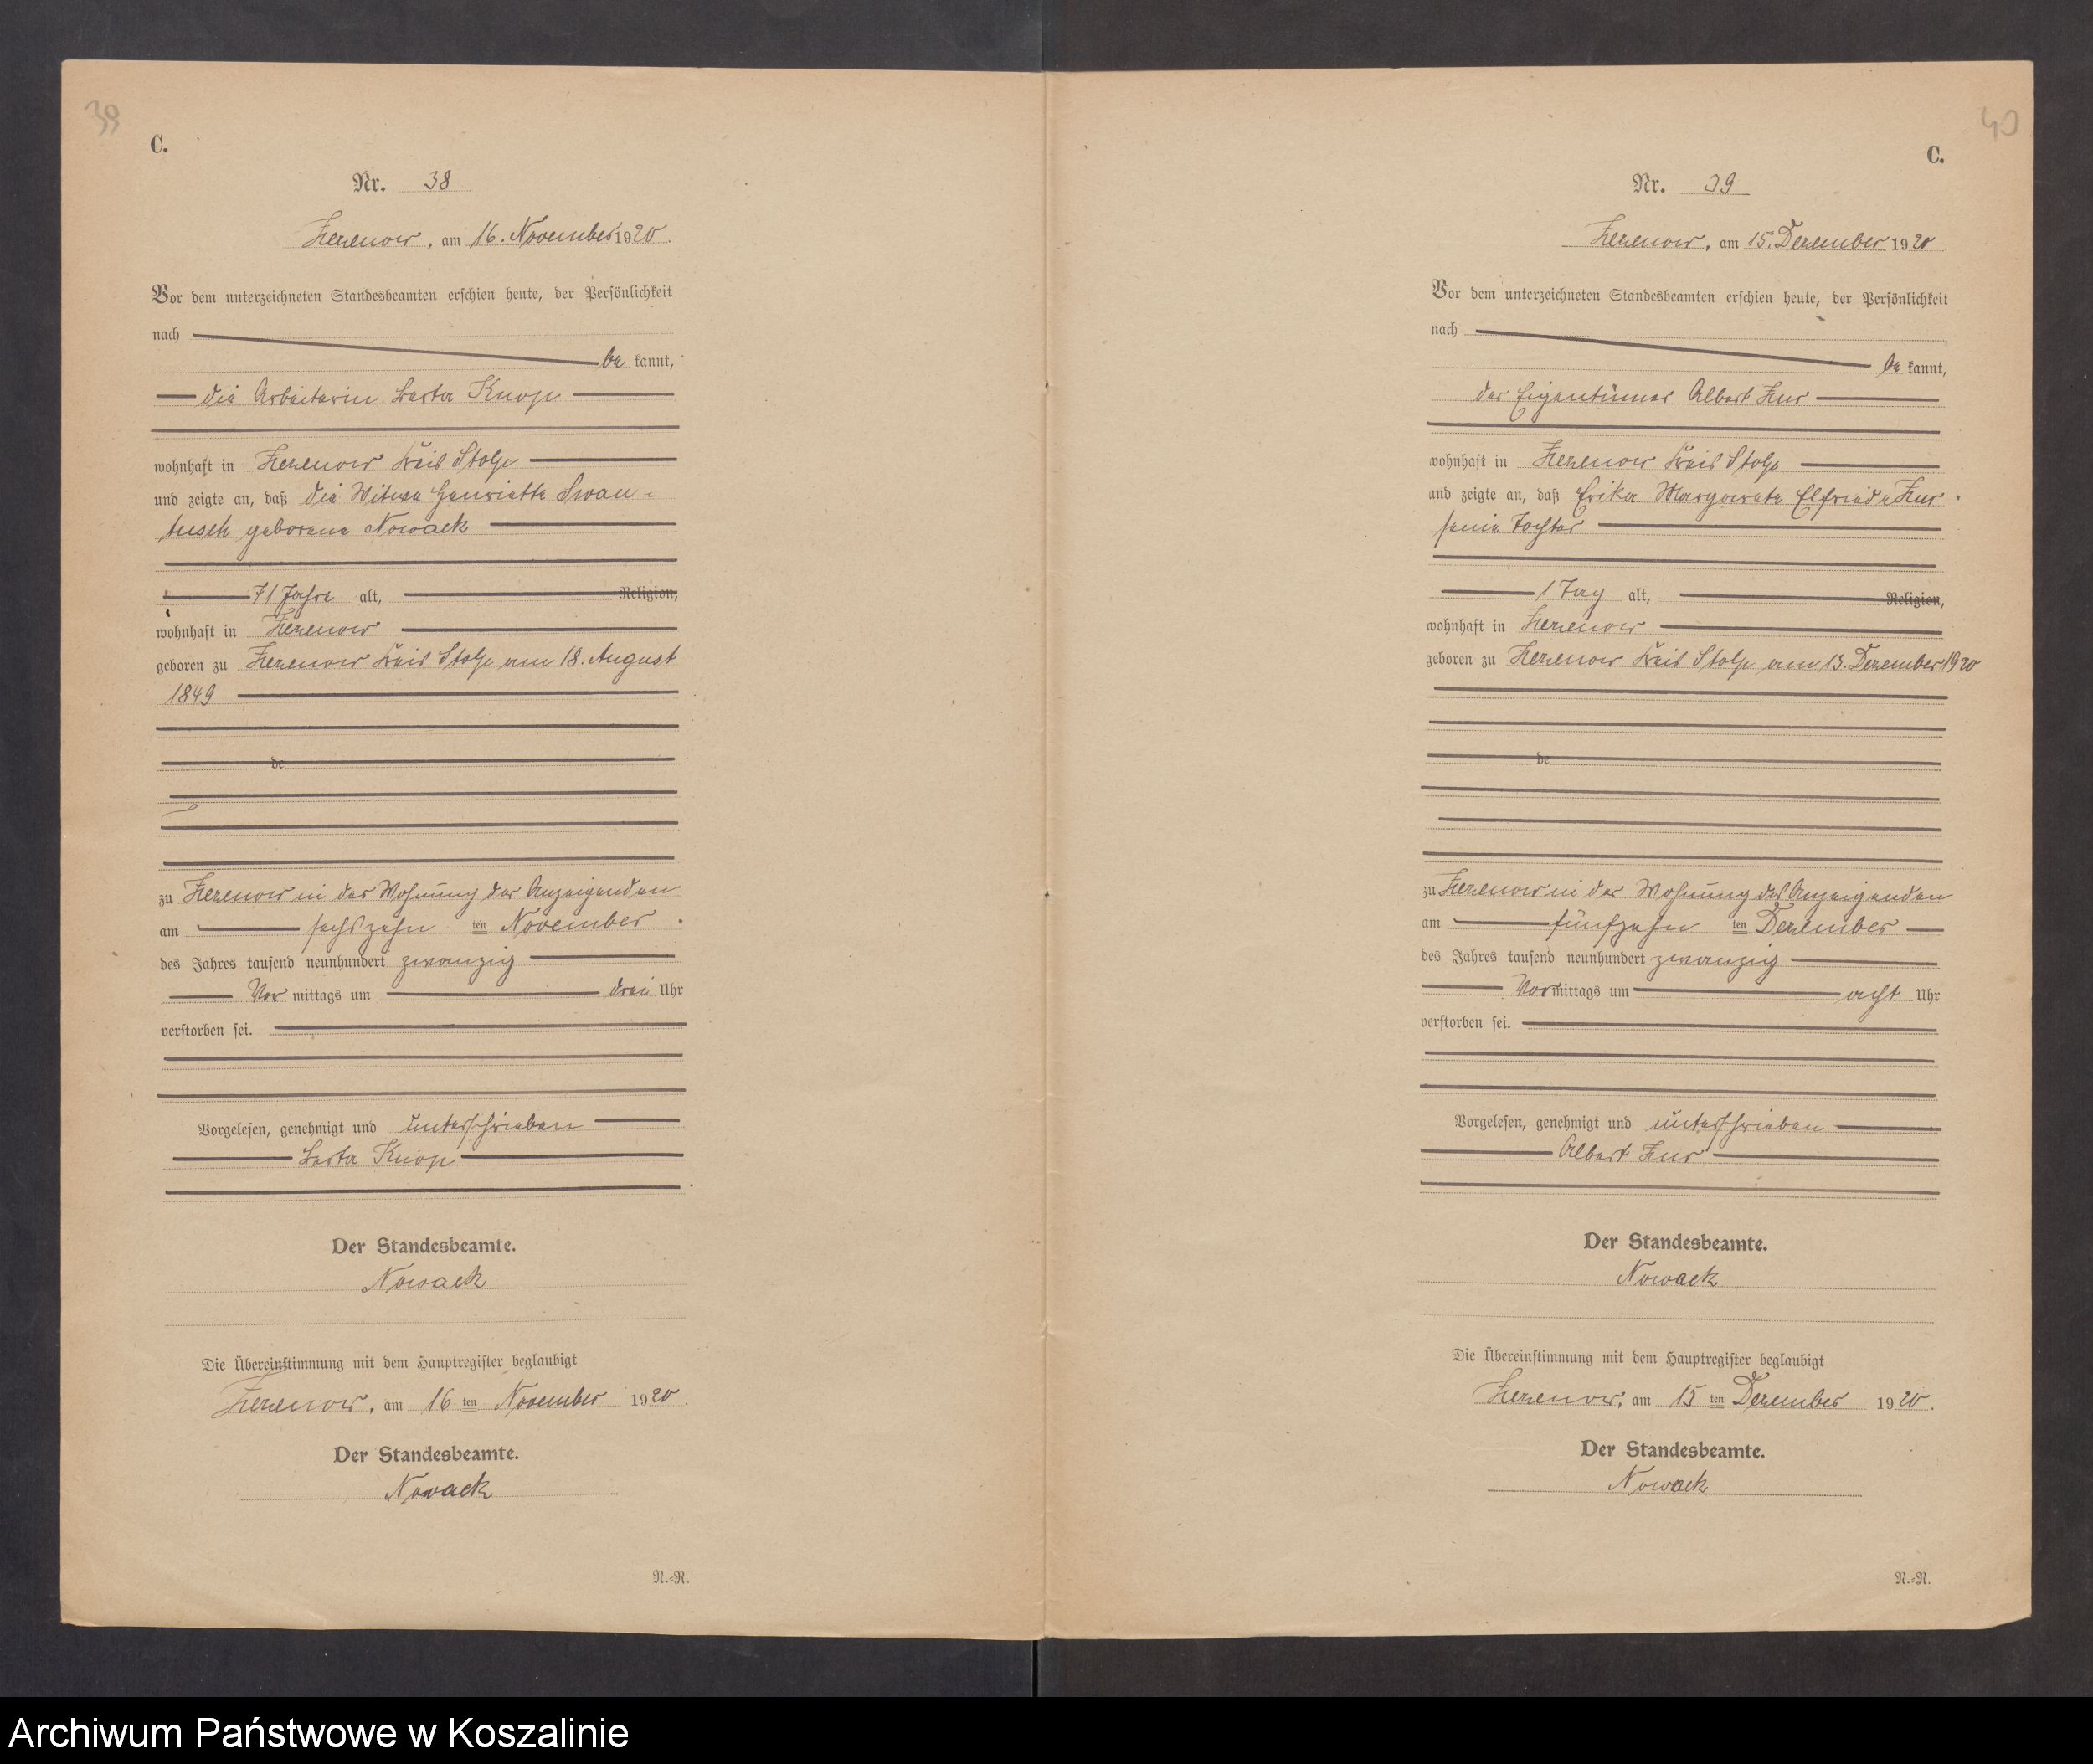 39
C.
Nr. 38
Zezenow, am 16. November 1920.
Vor dem unterzeichneten Standesbeamten erschien heute, der Persönlichkeit
nach
be kannt,
die Arbeiterin Berta Knop
wohnhaft in Zezenow Kreis Stolp
und zeigte an, daß die Witwe Henriette Swan=
tusch geborene Nowack
71 Jahre alt, Religion,
wohnhaft in Zezenow
geboren zu Zezenow Kreis Stolp am 18. August
1849
de
zu Zezenow in der Wohnung der Anzeigenden
am sechszehn ten November
des Jahres tausend neunhundert zwanzig
Vor mittags um drei Uhr
verstorben sei.
Vorgelesen, genehmigt und unterschrieben
Berta Knop
Der Standesbeamte.
Nowack
Die Übereinstimmung mit dem Hauptregister beglaubigt
Zezenow, am 16 ten November 1920.
Der Standesbeamte.
Nowack
N.=N.
40
C.
Nr. 39
Zezenow, am 15. Dezember 1920
Vor dem unterzeichneten Standesbeamten erschien heute, der Persönlichkeit
nach
be kannt,
der Eigentümer Albert Zur
wohnhaft in Zezenow Kreis Stolp
und zeigte an, daß Erika Margarete Elfriede Zur
seine Tochter
1 Tag alt, Religion,
wohnhaft in Zezenow
geboren zu Zezenow Kreis Stolp am 13. Dezember 1920
de
zu Zezenow in der Wohnung des Anzeigenden
am fünfzehn ten Dezember
des Jahres tausend neunhundert zwanzig
Vor mittags um acht Uhr
verstorben sei.
Vorgelesen, genehmigt und unterschrieben
Albert Zur
Der Standesbeamte.
Nowack
Die Übereinstimmung mit dem Hauptregister beglaubigt
Zezenow, am 15 ten Dezember 1920.
Der Standesbeamte.
Nowack
N.=N.
Archiwum Państwowe w Koszalinie